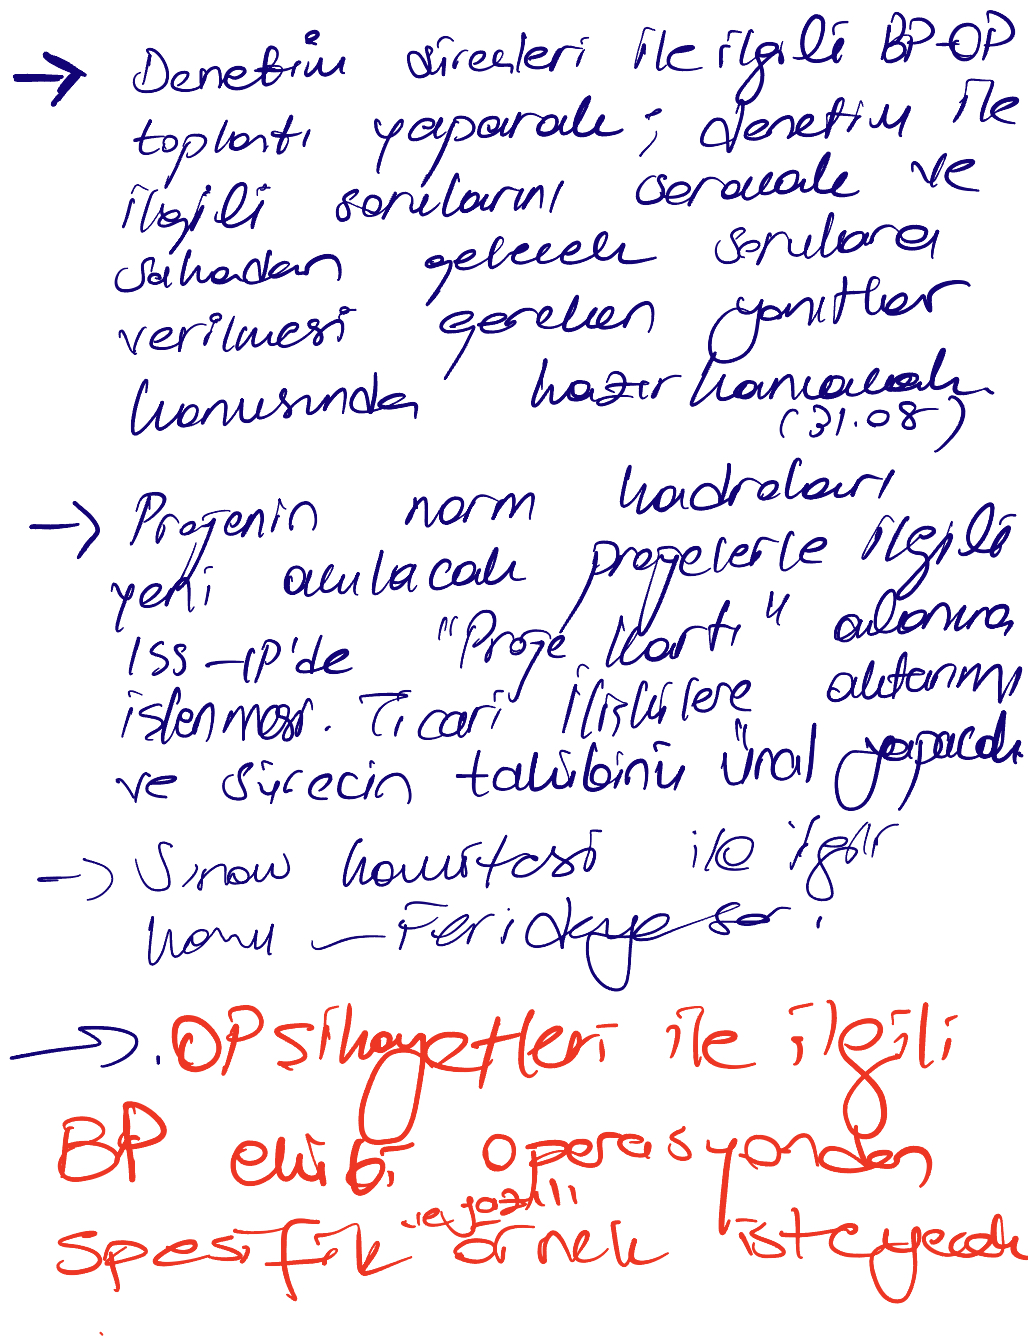 → Denetim süreçleri ile ilgili BP-OP
toplantı yaparak; denetim ile
ilgili sorularını soracak ve
sahadan gelecek sorulara
verilmesi gereken yanıtlar
konusunda hazırlanacak
(31.08)
→ Projenin norm kadroları
yeni açılacak projelerle ilgili
ISS-IP'de "Proje Kartı" alanına
işlenmesi. Ticari İlişkilere aktarımı
ve sürecin takibini Ünal yapacak
→ Sınav komitesi ile ilgili
konu — Ferideye sor.
→ . OP şikayetleri ile ilgili
BP ekibi operasyondan
ve yazılı
spesifik örnek isteyecek